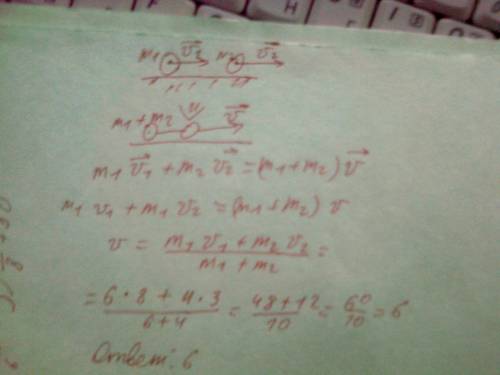 m₁ v⃗₂ m₂ v⃗₂
m₁+m₂ v⃗
m₁v⃗₁ + m₂v⃗₂ = (m₁+m₂)v⃗
m₁v₁ + m₁v₂ = (m₁+m₂)v
v = (m₁v₁ + m₂v₂)/(m₁ + m₂) =
= (6·8 + 4·3)/(6+4) = (48+12)/10 = 60/10 = 6
Ответ: 6